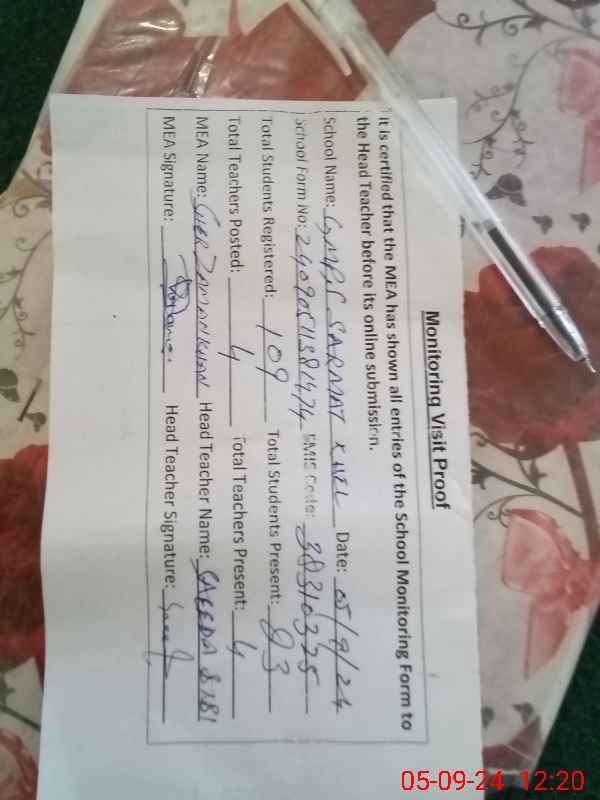 Monitoring Visit Proof
it is certified that the MEA has shown all entries of the School Monitoring Form to
the Head Teacher before its online submission.
School Name: GMPS SARMAT KHEL Date: 05/9/24
School Form No: EMIS Code: 38310325
Total Students Registered: 109 Total Students Present: 83
Total Teachers Posted: 4 Total Teachers Present: 4
MEA Name: SHER ZAMAN KHAN Head Teacher Name: SAEEDA BIBI
MEA Signature: Head Teacher Signature:
05-09-24 12:20